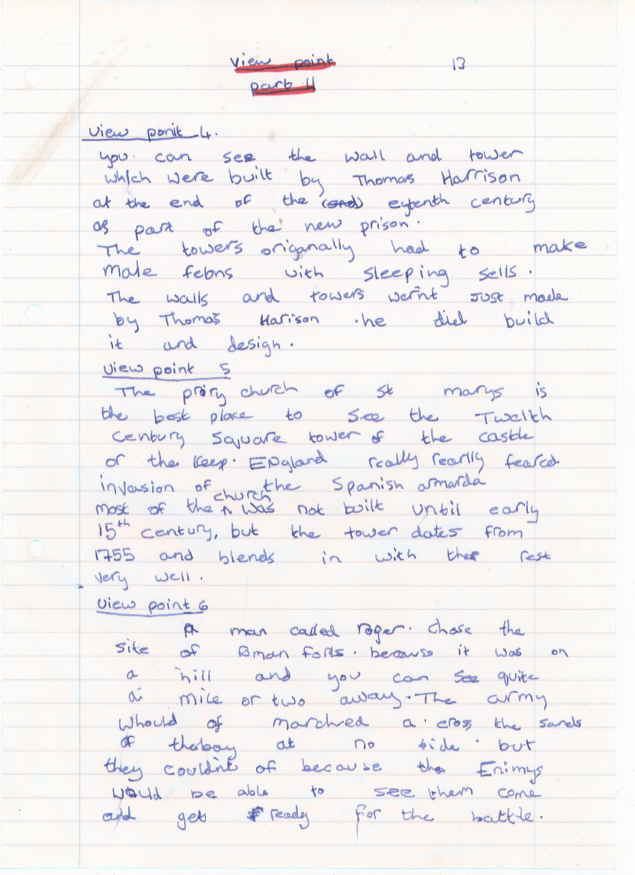 View point 13
part 4
View ponit 4.
you can see the wall and tower
which were built by Thomas Harrison
at the end of the (end) eytenth century
as part of the new prison.
The towers origanally had to make
male felons with sleeping sells.
The walls and towers wernt Just made
by Thomas Harison .he did build
it and design.
View point 5
The priory church of st marys is
the best place to see the Twelth
century square tower of the castle
or the keep. England really rearlly feared
invasion of the Spanish armarda
most of the church was not built until early
15th century, but the tower dates from
1755 and blends in with the rest
very well.
View point 6
A man called roger. chose the
site of roman forts. because it was on
a hill and you can see quite
a mile or two away. The army
whould of marchved a.cross the sands
of thebay at no tide. but
they couldn't of because the Enimys
would be able to see them come
and get ready for the battle.